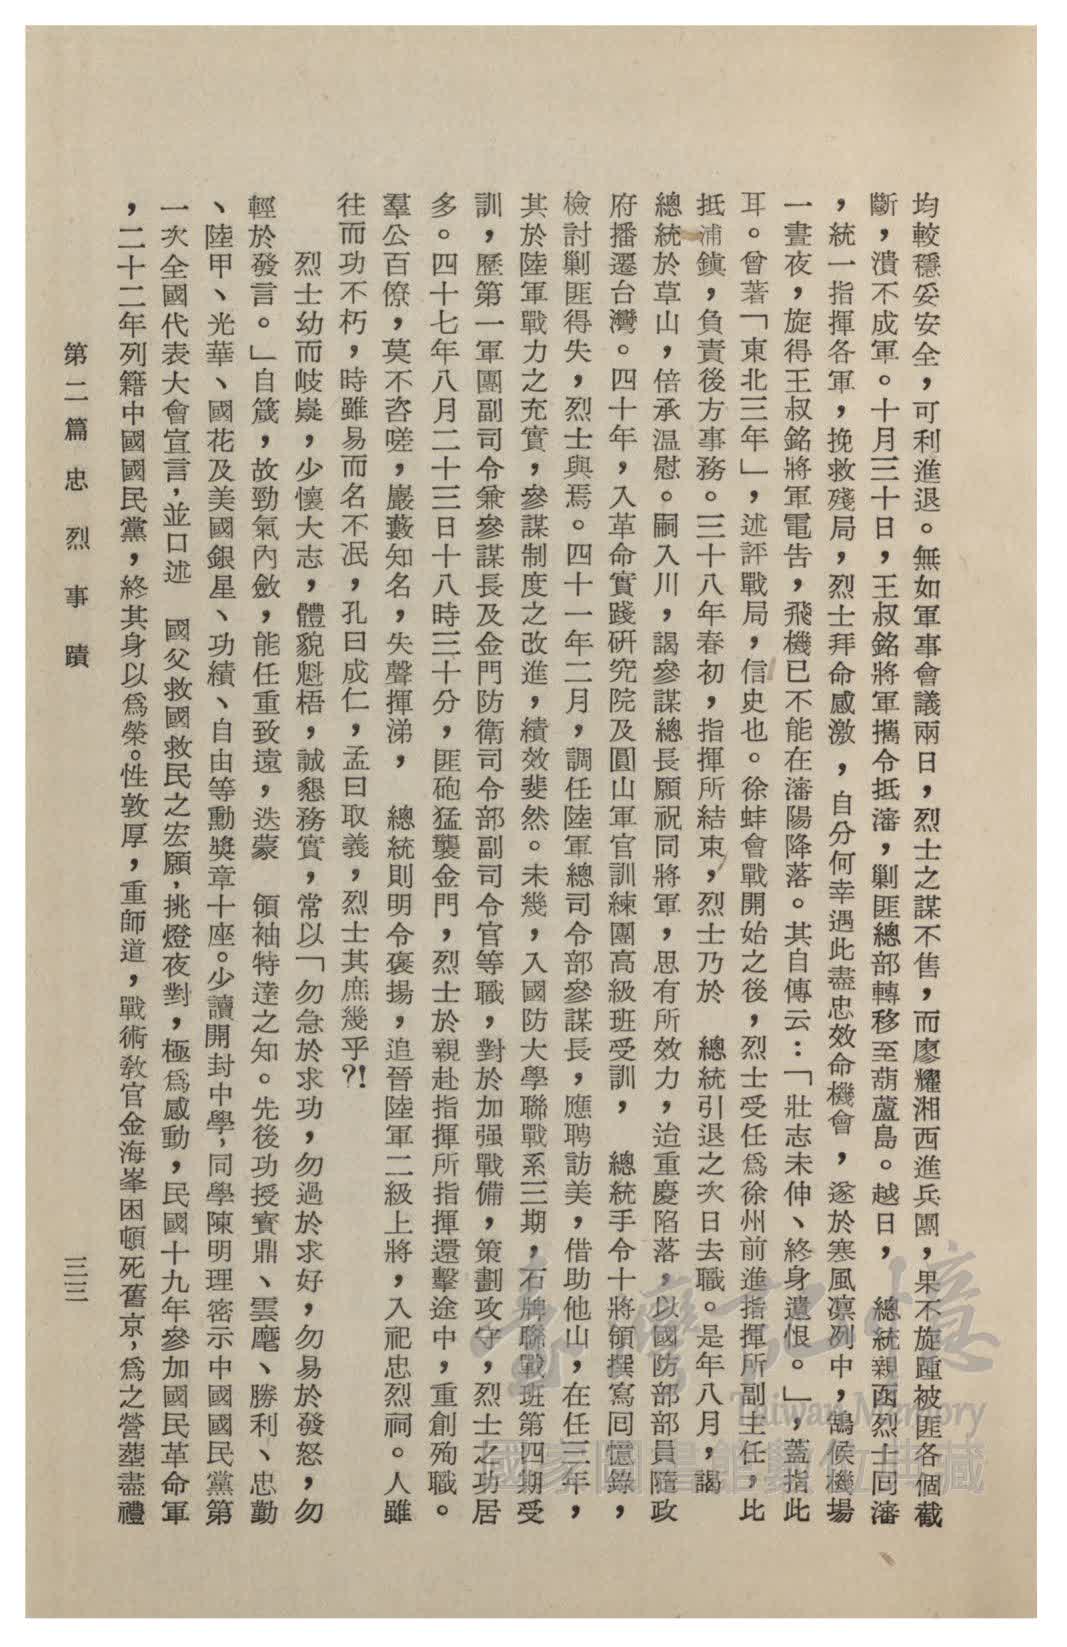 均較穩妥安全，可利進退。無如軍事會議兩日，烈士之謀不售，而廖耀湘西進兵團，果不旋踵被匪各個截
斷，潰不成軍。十月三十日，王叔銘將軍攜令抵瀋，剿匪總部轉移至葫蘆島。越日，　總統親函烈士回瀋
，統一指揮各軍，挽救殘局，烈士拜命感激，自分何幸遇此盡忠效命機會，遂於寒風凜列中，鵠候機場
一晝夜，旋得王叔銘將軍電告，飛機已不能在瀋陽降落。其自傳云：「壯志未伸、終身遺恨。」，蓋指此
耳。曾著「東北三年」，述評戰局，信史也。徐蚌會戰開始之後，烈士受任爲徐州前進指揮所副主任，比
抵浦鎭，負責後方事務。三十八年春初，指揮所結束，烈士乃於　總統引退之次日去職。是年八月，謁
總統於草山，倍承温慰。嗣入川，謁參謀總長顧祝同將軍，思有所效力，迨重慶陷落，以國防部部員隨政
府播遷台灣。四十年，入革命實踐硏究院及圓山軍官訓練團高級班受訓，　總統手令十將領撰寫囘憶錄，
檢討剿匪得失，烈士與焉。四十一年二月，調任陸軍總司令部參謀長，應聘訪美，借助他山，在任三年，
其於陸軍戰力之充實，參謀制度之改進，績效斐然。未幾，入國防大學聯戰系三期，石牌聯戰班第四期受
訓，歷第一軍團副司令兼參謀長及金門防衛司令部副司令官等職，對於加强戰備，策劃攻守，烈士之功居
多。四十七年八月二十三日十八時三十分，匪砲猛襲金門，烈士於親赴指揮所指揮還擊途中，重創殉職。
羣公百僚，莫不咨嗟，巖藪知名，失聲揮涕，　總統則明令褒揚，追晉陸軍二級上將，入祀忠烈祠。人雖
往而功不朽，時雖易而名不泯，孔曰成仁，孟曰取義，烈士其庶幾乎?!
烈士幼而岐嶷，少懷大志，體貌魁梧，誠懇務實，常以「勿急於求功，勿過於求好，勿易於發怒，勿
輕於發言。」自箴，故勁氣內斂，能任重致遠，迭蒙　領袖特達之知。先後功授寶鼎、雲麾、勝利、忠勤
、陸甲、光華、國花及美國銀星、功績、自由等勳獎章十座。少讀開封中學，同學陳明理密示中國國民黨第
一次全國代表大會宣言，並口述　國父救國救民之宏願，挑燈夜對，極爲感動，民國十九年參加國民革命軍
，二十二年列籍中國國民黨，終其身以爲榮。性敦厚，重師道，戰術敎官金海峯困頓死舊京，爲之營葬盡禮
第二篇　忠烈事蹟
三三
臺灣記憶
Taiwan Memory
國家圖書館數位典藏